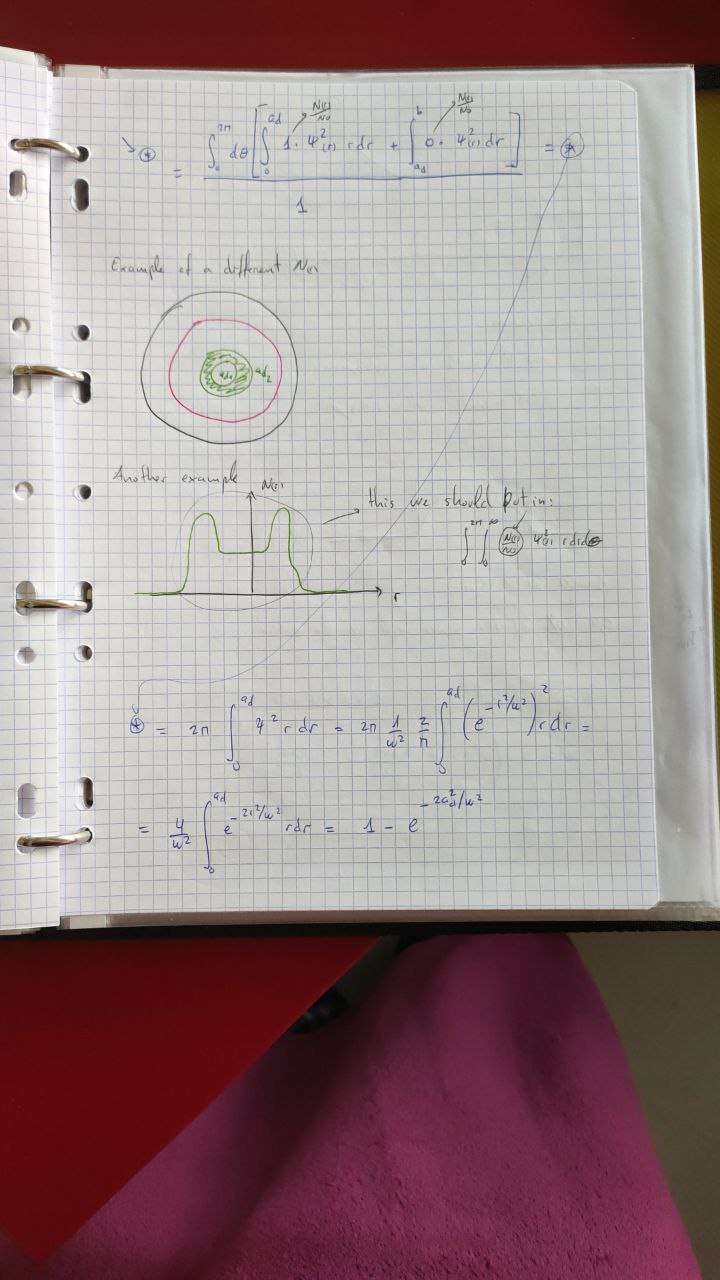 N(r)/N0 N(r)/N0
⊛ = ∫₀^2π dθ [ ∫₀^ad 1 · Ψ²(r) r dr + ∫_ad^b 0 · Ψ²(r) dr ] / 1 = ⊛
Example of a different N(r)
ad1 ad2
Another example N(r)
this we should put in:
∫₀^2π ∫₀^∞ N(r)/N0 Ψ²(r) r dr dθ
r
⊛ = 2π ∫₀^ad Ψ² r dr = 2π 1/w² 2/π ∫₀^ad (e^-r²/w²)² r dr =
= 4/w² ∫₀^ad e^-2r²/w² r dr = 1 - e^-2ad²/w²